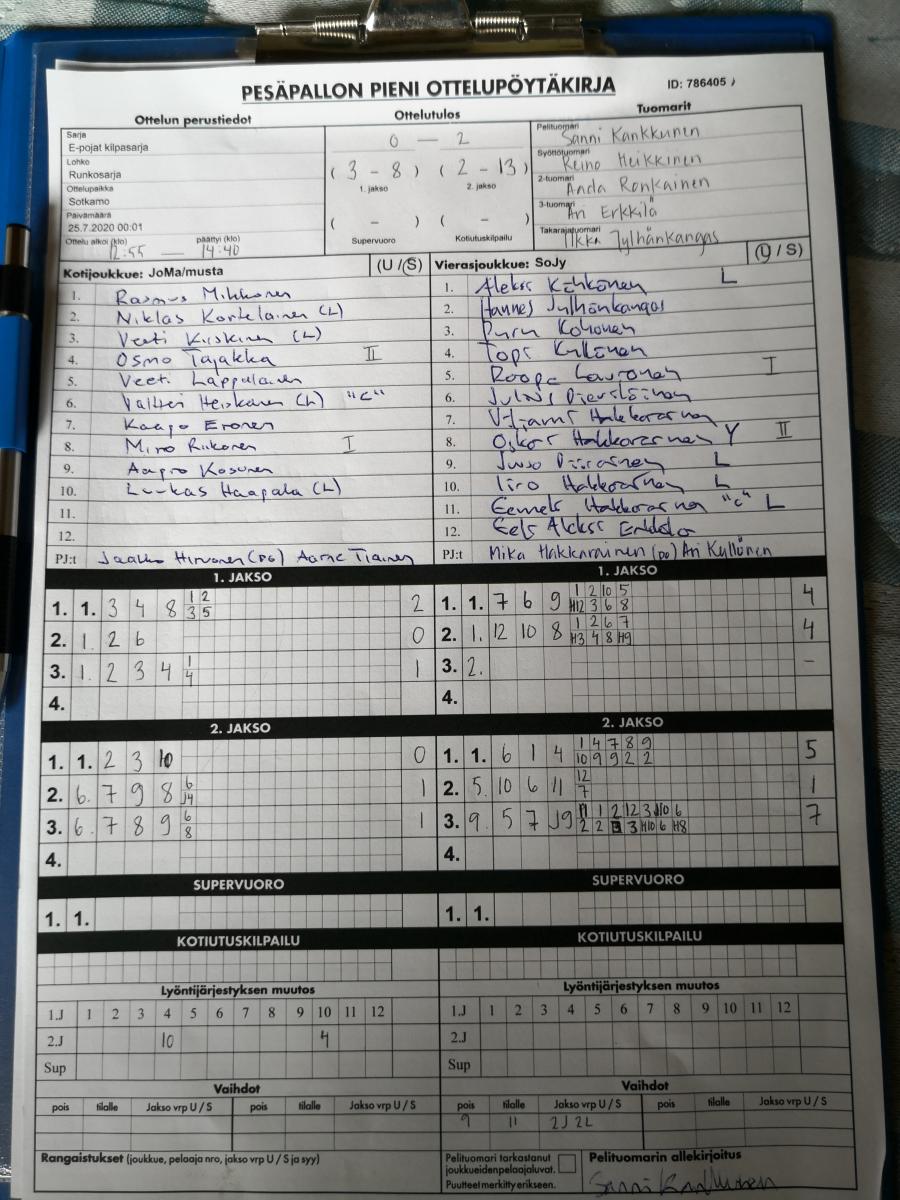 PESÄPALLON PIENI OTTELUPÖYTÄKIRJA
ID: 786405
Ottelun perustiedot
Ottelutulos
Tuomarit
Sarja
E-pojat kilpasarja
Lohko
Runkosarja
Ottelupaikka
Sotkamo
Päivämäärä
25.7.2020 00:01
Ottelu alkoi (klo) päättyi (klo)
12:55 — 14:40
0 — 2
(3 - 8) (2 - 13)
1. jakso 2. jakso
( - ) ( - )
Supervuoro Kotiutuskilpailu
Pelituomari
Sanni Kankkunen
Syöttötuomari
Reino Heikkinen
2-tuomari
Anda Ronkainen
3-tuomari
Ari Erkkilä
Takarajatuomari
Ilkka Jylhänkangas
Kotijoukkue: JoMa/musta (U / S)
1. Rasmus Mikkonen
2. Niklas Kortelainen (L)
3. Veeti Kiiskinen (L)
4. Osmo Tajakka II
5. Veeti Lappalainen
6. Valtteri Heiskanen (L) "C"
7. Kaapo Eronen
8. Miro Riikonen I
9. Aapro Kosunen
10. Luukas Haapala (L)
11.
12.
PJ:t Jaakko Hirvonen (PG) Aarne Tiainen
Vierasjoukkue: SoJy (U / S)
1. Aleksi Kähkönen L
2. Hannes Jylhänkangas
3.
4. Topi Kyllönen
5. Roope I
6.
7. Viljami Hakkarainen
8. Hakkarainen Y II
9. Juuso L
10. Iiro Hakkarainen L
11. Eemeli Hakkarainen "C" L
12. Aleksi
PJ:t Mika Hakkarainen (PG) Ari Kyllönen
1. JAKSO
1. 1. 3 4 8 1 2 2
3 5
2. 1. 2 6 0
3. 1. 2 3 4 1 1
4
4.
1. JAKSO
1. 1. 7 6 9 1 2 10 5 4
H12 3 6 8
2. 1. 12 10 8 1 2 6 7 4
H3 4 8 H9
3. 2. –
4.
2. JAKSO
1. 1. 2 3 10 0
2. 6. 7 9 8 6 1
J4
3. 6. 7 8 9 6 1
8
4.
2. JAKSO
1. 1. 6 1 4 1 4 7 8 9 5
10 9 9 2 2
2. 5. 10 6 11 12 1
7
3. 9. 5 7 J9 11 1 2 12 3 J10 6 7
2 2 3 3 H10 6 H8
4.
SUPERVUORO
1. 1.
SUPERVUORO
1. 1.
KOTIUTUSKILPAILU
KOTIUTUSKILPAILU
Lyöntijärjestyksen muutos
1.J 1 2 3 4 5 6 7 8 9 10 11 12
2.J 10 4
Sup
Lyöntijärjestyksen muutos
1.J 1 2 3 4 5 6 7 8 9 10 11 12
2.J
Sup
Vaihdot
pois tilalle Jakso vrp U / S pois tilalle Jakso vrp U / S
Vaihdot
pois tilalle Jakso vrp U / S pois tilalle Jakso vrp U / S
9 11 2J 2L
Rangaistukset (joukkue, pelaaja nro, jakso vrp U / S ja syy)
Pelituomari tarkastanut
joukkueidenpelaajaluvat.
Puutteet merkitty erikseen.
Pelituomarin allekirjoitus
Sanni Kankkunen